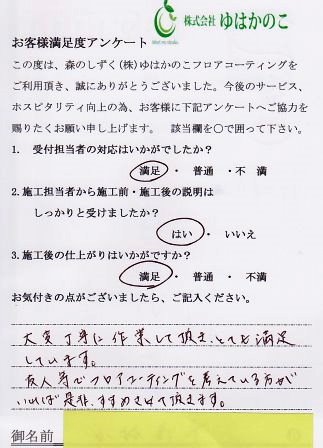 株式会社 ゆはかのこ
お客様満足度アンケート
この度は、森のしずく(株)ゆはかのこフロアコーティングを
ご利用頂き、誠にありがとうございました。今後のサービス、
ホスピタリティ向上の為、お客様に下記アンケートへご協力を
賜りたくお願い申し上げます。 該当欄を〇で囲って下さい。
1. 受付担当者の対応はいかがでしたか?
満足 ・ 普通 ・不 満
2.施工担当者から施工前・施工後の説明は
しっかりと受けましたか?
はい ・ いいえ
3.施工後の仕上がりはいかがですか?
満足 ・ 普通 ・ 不 満
お気付きの点がございましたら、ご記入ください。
大変丁寧に作業して頂き、とても満足
しています。
友人等でフロアコーティングを考えている方が
いれば是非、すすめさせて頂きます。
御名前